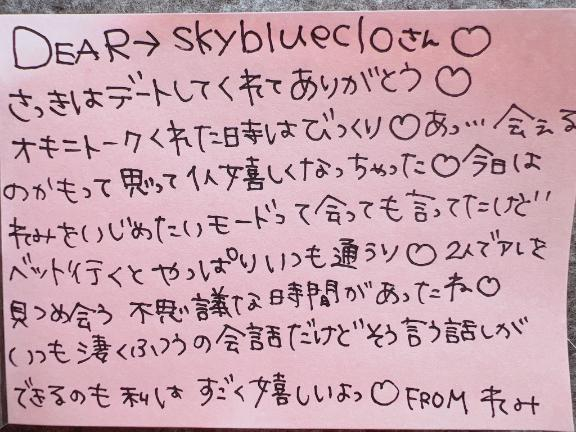 DEAR→ skybluecloさん♡
さっきはデートしてくれてありがとう♡
オキニトークくれた時はびっくり♡あっ…会える
のかもって思って1人嬉しくなっちゃった♡今日は
れみをいじめたいモードって会っても言ってたけど
ベッド行くとやっぱりいつも通うり♡2人でアレを
見つめ会う 不思議な時間があったね♡
いつも凄くふつうの会話だけどそう言う話しが
できるのも私は すごく嬉しいよっ♡FROM れみ